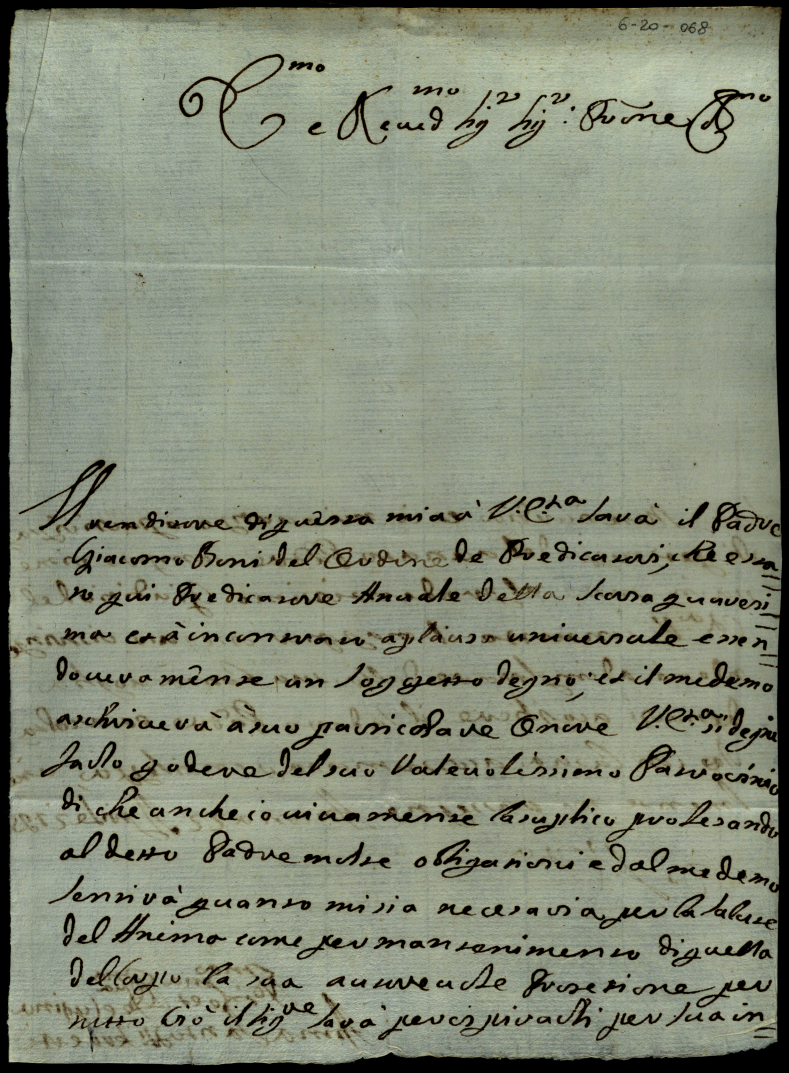 6-20-068
Ill.mo e Reuerd.mo Sig.r Sig.r P̃rone Col.mo
Il renditore di questa mia à V.E.za sarà il Padre
Giacomo Boni del Ordine de Predicatori, che è sta=
to qui Predicatore Anuale della scorsa quaresi=
ma et à incontrato aplauso uniuersale essen=
do ueramente un soggetto degno; et il medemo
ascriuerà à suo particolare Onore V.E.za si degni
farlo godere del suo Valeuolissimo Patrocinio
di che anche io uiuamente la suplico professando
al detto Padre molte obligationi e dal medemo
sentirà quanto mi sia necesaria per la salute
del Anima come per mantenimento di quella
del Corpo la sua autoreuole Protetione per
tutto Ciò il Sig.re sarà per ispirarli per sua in=